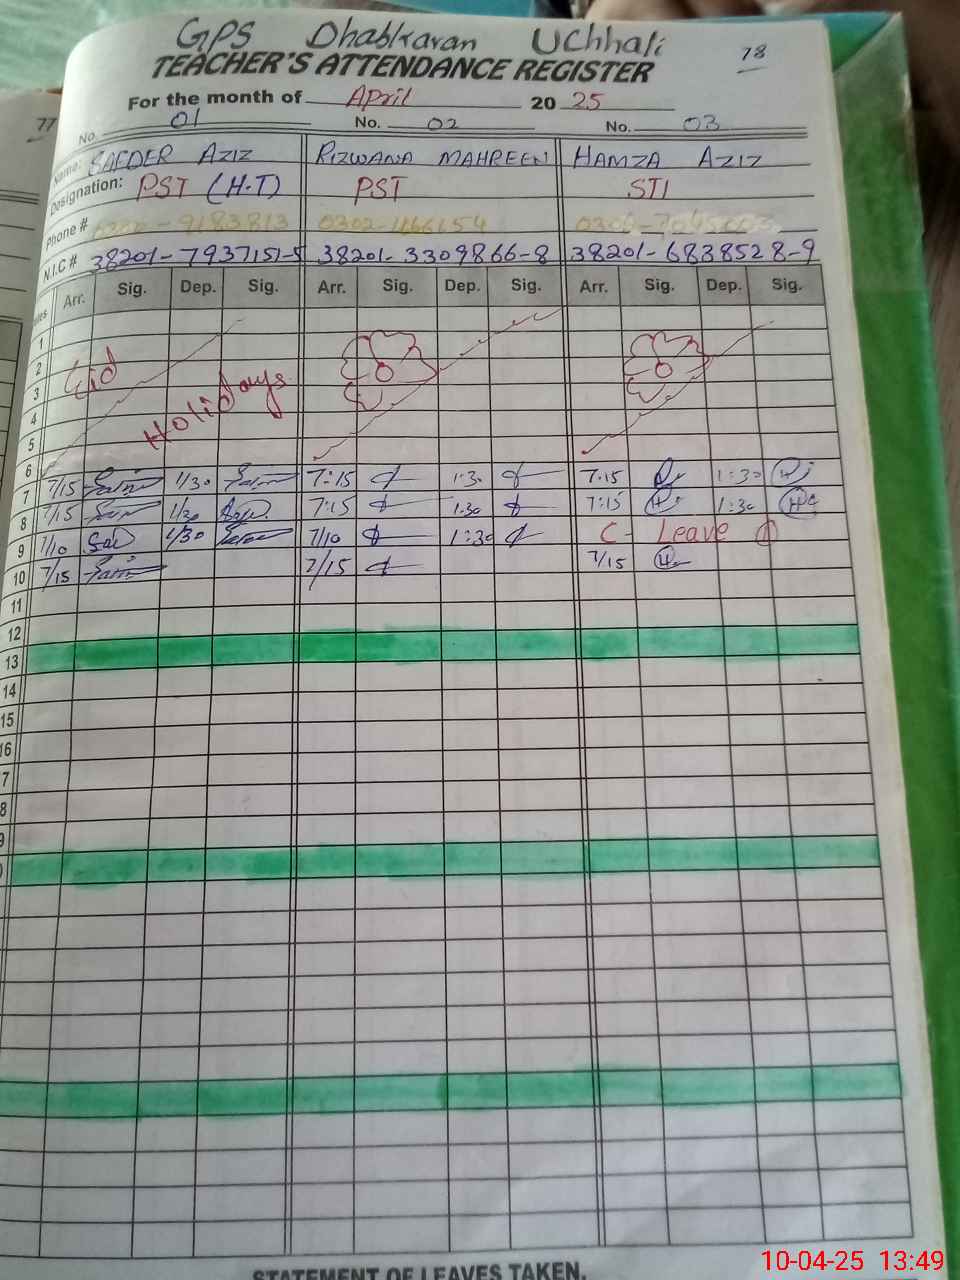 GPS Dhabkaran Uchhali
78
TEACHER'S ATTENDANCE REGISTER
For the month of April 20 25
77
No. 01 No. 02 No. 03
Name: SAFDER AZIZ RIZWANA MAHREEN HAMZA AZIZ
Designation: PST (H.T) PST STI
Phone # 9183813 0302-1166154
N.I.C # 38201-7937151-5 38201-3309866-8 38201-6838528-9
Arr. Sig. Dep. Sig. Arr. Sig. Dep. Sig. Arr. Sig. Dep. Sig.
1
2 Eid
3 Holidays
4
5
6
7 7/15 1/30 7:15 1:30 7:15 1:30
8 7/15 1/30 7:15 1:30 7:15 1:30
9 7/10 1/30 7/10 1:30 C- Leave
10 7/15 7/15 7/15
11
12
13
14
15
16
7
8
9
STATEMENT OF LEAVES TAKEN.
10-04-25 13:49